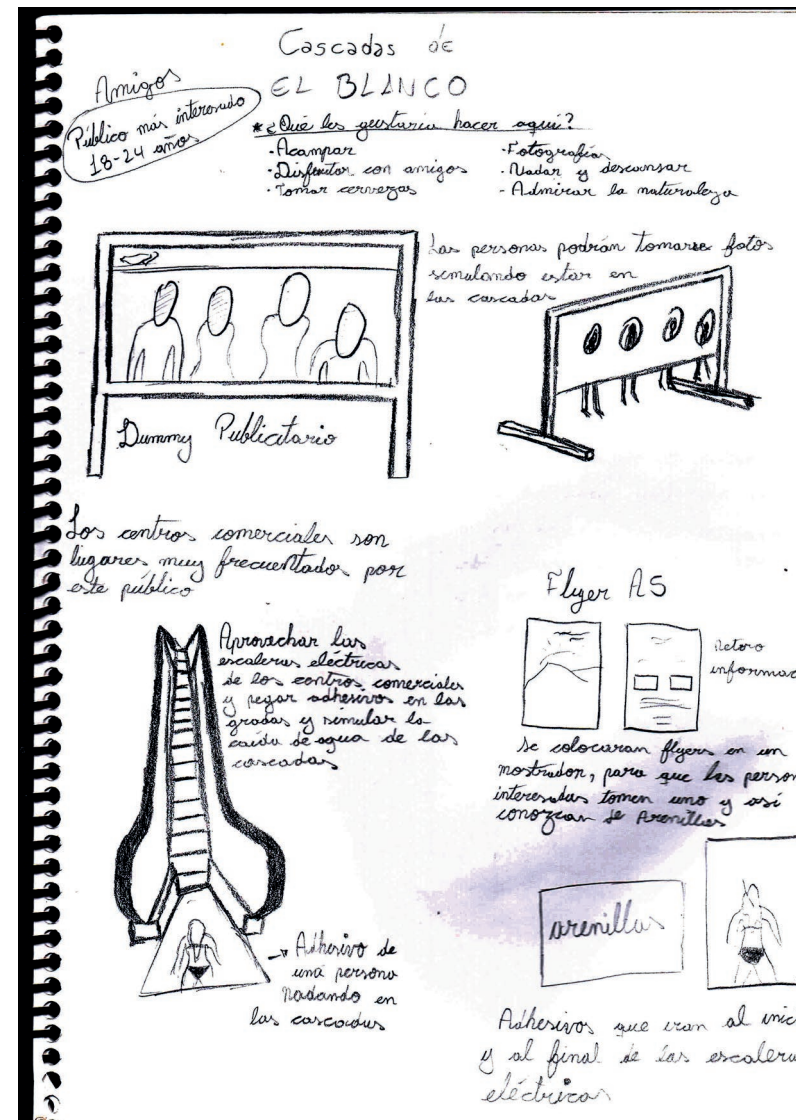 Cascadas de
EL BLANCO
Amigos
Público más interesado
18-24 años
*¿Qué les gustaría hacer aquí?
·Acampar
·Disfrutar con amigos
·Tomar cervezas
·Fotografías
·Nadar y descansar
- Admirar la naturaleza
Las personas podrán tomarse fotos
simulando estar en
las cascadas
Dummy Publicitario
Los centros comerciales son
lugares muy frecuentados por
este público
Aprovechar las
escaleras eléctricas
de los centros comerciales
y pegar adhesivos en las
gradas y simular la
caída de agua de las
cascadas
Adhesivo de
una persona
nadando en
las cascadas
Flyer A5
Retiro
informac
Se colocaran flyers en un
mostrador, para que las person
interesadas tomen uno y así
conozcan de Arenillas
arenillas
Adhesivos que iran al inic
y al final de las escalera
eléctricas